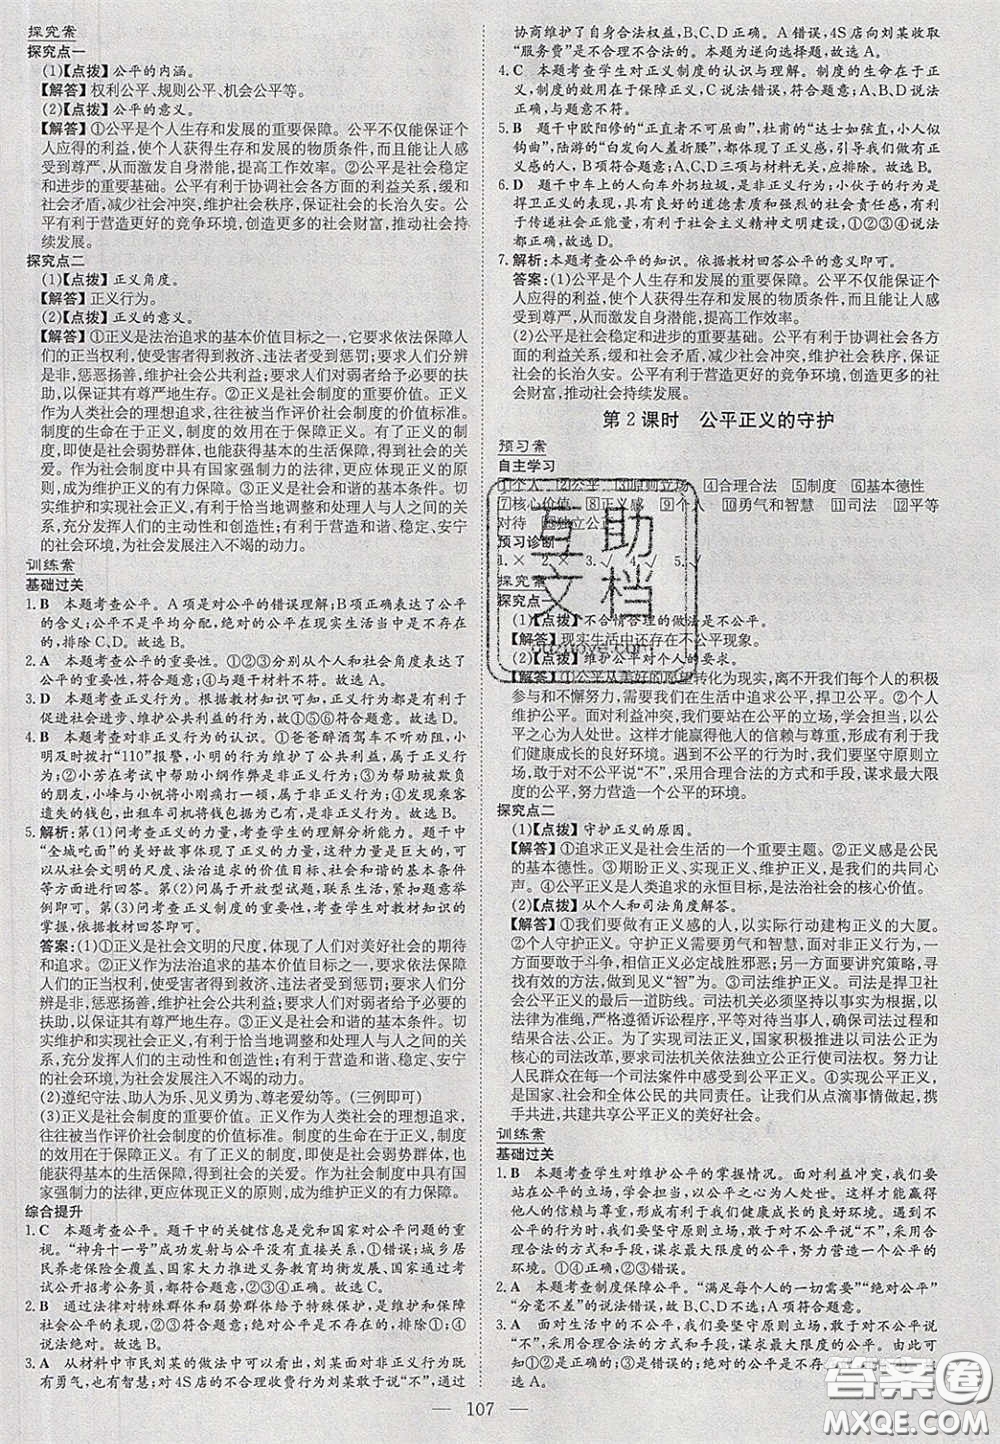 探究案
探究点一
(1)【点拨】公平的内涵。
【解答】权利公平、规则公平、机会公平等。
(2)【点拨】公平的意义。
【解答】①公平是个人生存和发展的重要保障。公平不仅能保障个
人应得的利益,使个人获得生存和发展的物质条件,而且能让人感
受到尊严,从而激发自身潜能,提高工作效率。②公平是社会稳定
和进步的重要基础。公平有利于协调社会各方面的利益关系,缓和
社会矛盾,减少社会冲突,维护社会秩序,保证社会的长治久安。公
平有利于营造更好的竞争环境,创造更多的社会财富,推动社会持
续发展。
探究点二
(1)【点拨】正义角度。
【解答】正义行为。
(2)【点拨】正义的意义。
【解答】①正义是法治追求的基本价值目标之一,它要求依法保障人
们的正当权利,使受害者得到救济、违法者受到惩罚;要求人们分辨
是非,惩恶扬善,维护社会公共利益;要求人们对弱者给予必要的扶助,
以保证其有尊严地生存。②正义是社会制度的重要价值。正义
作为人类社会的理想追求,应当被当作评价社会制度的价值标准。
制度的生命在于正义,制度的效用在于保障正义。有了正义的制
度,能使社会弱势群体、困难人群的基本生活得到保障,获得社会的关
爱。作为社会制度中具有国家强制力的法律,更应体现正义的原则,
成为正义的有力保障。③正义是社会和谐的基本条件。正义作为
社会和谐的基本条件,有助于恰当地调整和处理人与人之间的关系,
充分发挥人们的主动性和创造性;有助于营造和谐、稳定、安宁
的社会环境,为社会发展注入不竭的动力。
训练案
基础过关
1. B 本题考查公平。A项是对公平的错误理解;B项正确表达了公平
的含义;公平不是平均分配,绝对的公平在现实生活当中是不存在
的,排除C、D。故选B。
2. A 本题考查公平的重要性。①②③分别从个人和社会角度表达
公平的重要性,符合题意;④与题干材料不符。故选A。
3. D 本题考查正义行为。根据教材知识可知,正义行为都是有利于
促进社会进步、维护公共利益的行为,故①⑤⑥符合题意。故选D。
4. B 本题考查对非正义行为的认识。①爸爸醉酒驾车不听劝阻,小
明及时拨打“110”报警,小明的行为维护了公共利益,属于正义行
为;②小芳在考试中帮助小纲作弊是非正义行为;③为帮助被欺负
的朋友,小峰与小帆将小刚痛打一顿,属于非正义行为;④发现乘客
遗失的钱包,出租车司机将钱包送还是正义行为。故选B。
5. 解析:第(1)问考查正义的力量,考查学生的理解分析能力。题干中
“全城吃面”的美好故事体现了正义的力量,这种力量是巨大的,可
以从社会文明的尺度、法治追求的价值目标和社会和谐的基本条件
等方面进行回答。第(2)问属于开放型试题,联系生活、紧扣题意举
例即可。第(3)问考查正义制度的重要性,考查学生对教材知识的
掌握,依据教材回答即可。
答案:(1)①正义是社会文明的尺度,体现了人们对美好社会的期待
和追求。②正义作为法治追求的基本价值目标之一,要求依法保障
人们的正当权利,使受害者得到救济、违法者受到惩罚;要求人们分
辨是非,惩恶扬善,维护社会公共利益;要求人们对弱者给予必要的
扶助,以保证其有尊严地生存。③正义是社会和谐的基本条件。正
义作为社会和谐的基本条件,有助于恰当地调整和处理人与人之间的
关系,充分发挥人们的主动性和创造性;有助于营造和谐、稳定、安宁
的社会环境,为社会发展注入不竭的动力。
(2)遵纪守法、助人为乐、见义勇为、尊老爱幼等。(三例即可)
(3)正义是社会制度的重要价值。正义作为人类社会的理想追求,
应当被当作评价社会制度的价值标准。制度的生命在于正义,制度
的效用在于保障正义。有了正义的制度,能使社会弱势群体、困难人
群的基本生活得到保障,获得社会的关爱。作为社会制度中具有国
家强制力的法律,更应体现正义的原则,成为正义的有力保障。
综合提升
1. C 本题考查公平。题干中的关键信息是党和国家对公平问题的重
视。“神舟十一号”成功发射与公平没有直接关系,①错误;城乡居
民养老保险全覆盖、国家大力推进义务教育均衡发展、国家通过考
试公开招考公务员,都是公平的表现,②③④正确。故选C。
2. B 通过法律对特殊群体和弱势群体给予特殊保护,是维护和保障
社会公平的表现,②③符合题意;绝对的公平是不存在的,排除①;④
说法绝对。故选B。
3. A 从材料中市民刘某的做法中可以看出,刘某面对非正义行为既
有勇气,也有智慧,对4S店的不合理收费行为敢于说“不”,通过
协商维护了自身合法权益,故B、C、D正确。A错误,4S店向刘某收取
“服务费”是不合理不合法的。本题为逆向选择题,故选A。
4. C 本题考查学生对正义制度的认识与理解。制度的生命在于正
义,制度的效用在于保障正义,C说法错误,符合题意;A、B、D说法
正确,不符合题意。故选C。
5. B 题干中欧阳修的“正直者不可屈曲”,杜甫的“达士如弦直,小人似
钩曲”,陆游的“白发向人羞折腰”,都表现了正义感,赞美了具有正
义感的人。B项符合题意;A、C、D三项与材料无关,应排除。故选B。
6. D 题干中车上的人向车外扔垃圾,是非正义行为;小伙子的行为是
捍卫正义的表现,具有良好的道德素质和强烈的社会责任感,有利
于传递社会正能量,有利于社会主义精神文明建设,①②③④说法
都正确,故选D。
7. 解析:本题考查公平的知识。依据教材回答公平的意义即可。
答案:(1)公平是个人生存和发展的重要保障。公平不仅能保障个
人应得的利益,使个人获得生存和发展的物质条件,而且能让人感
受到尊严,从而激发自身潜能,提高工作效率。
(2)公平是社会稳定和进步的重要基础。公平有利于协调社会各方
面的利益关系,缓和社会矛盾,减少社会冲突,维护社会秩序,保证
社会的长治久安。公平有利于营造更好的竞争环境,创造更多的社
会财富,推动社会持续发展。
第2课时 公平正义的守护
预习案
自主学习
①个人 ②公平 ③原则立场 ④合理合法 ⑤制度 ⑥基本德性
⑦核心价值 ⑧正义感 ⑨个人 ⑩勇气和智慧 ⑪司法 ⑫平等
对待 ⑬独立公正
预习诊断
1. × 2. × 3. √ 4. √ 5. √
探究案
探究点一
(1)【点拨】不合情合理的做法是不公平。
【解答】现实生活中还存在不公平现象。
(2)【点拨】维护公平对个人的要求。
【解答】①公平从美好的愿望转化为现实,离不开我们每个人的积极
参与和不懈努力,需要我们在生活中追求公平,捍卫公平。②个人
维护公平。面对利益冲突,我们要站在公平的立场,学会担当,以公
平之心为人处世。这样才能赢得他人的信赖与尊重,创造有利于我
们健康成长的良好环境。遇到不公平的行为时,我们要坚守原则立
场,敢于对不公平说“不”,采用合理合法的方式和手段,谋求最大限
度的公平,努力营造一个公平的环境。
探究点二
(1)【点拨】守护正义的原因。
【解答】①追求正义是社会生活的一个重要主题。②正义感是公民
的基本德性。③期盼正义、实现正义、维护正义,是我们的共同心
声。④公平正义是人类追求的永恒目标,是法治社会的核心价值。
(2)【点拨】从个人和司法角度解答。
【解答】①我们要做有正义感的人,以实际行动建构正义的大厦。
②个人守护正义。守护正义需要勇气和智慧,面对非正义行为,一方
面要敢于斗争,相信正义必定战胜邪恶;另一方面要讲究策略,寻找
有效的方法,做到见义“智”为。③司法维护正义。司法是捍卫社会
公平正义的最后一道防线。司法机关必须坚持以事实为根据,以
法律为准绳,严格遵循诉讼程序,平等对待当事人,确保司法过程和
结果合法、公正。为了实现司法正义,国家积极推进以司法公正为
核心的司法改革,要求司法机关依法独立公正行使司法权。努力让
人民群众在每一个司法案件中感受到公平正义。实现公平正义,
是国家、社会和全体公民的共同责任。让我们从点滴事情做起,携
手并进,共建共享公平正义的美好社会。
训练案
基础过关
1. B 本题考查学生对维护公平的掌握情况。面对利益冲突,我们要
站在公平的立场,学会担当,以公平之心为人处世。这样才能赢得
他人的信赖与尊重,创造有利于我们健康成长的良好环境。遇到不
公平的行为时,我们要坚守原则立场,敢于对不公平说“不”,采用合
理合法的方式和手段,谋求最大限度的公平,努力营造一个公平的
环境。②③符合题意。故选B。
2. A 本题考查制度保障公平。“满足每个人的一切需要”“绝对公平”
“分毫不差”的说法错误,排除B、C、D;A项符合题意。故选A。
3. A 面对生活中的不公平,我们要坚守原则立场,敢于对不公平说
“不”,采用合理合法的方式和手段,谋求最大限度的公平。由此可
知①②正确。③④说法错误,绝对的公平是不存在的
选A。
107
互助
文档
答案圈
MXQE.COM